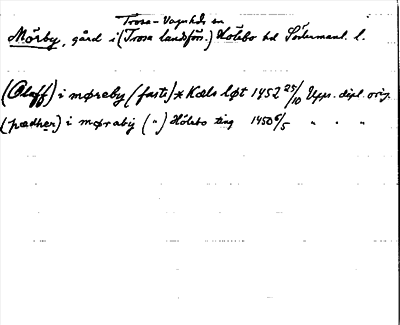 Trosa-Vagnhds sn
Mörby, gård i (Trosa landsförs.) Hölebo hd Södermanl. l.
(Olaff) i møreby (faste) * Kæls løt 1452 25/10 Upps. dipl. orig.
(pædher) i mørabij (") Hölebo ting 1450 6/5 " " "